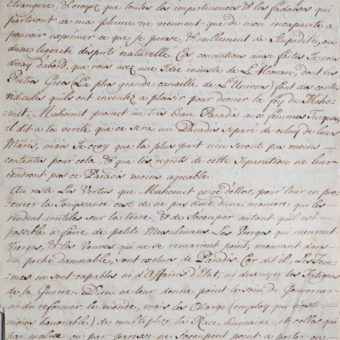 Etrangere, & croyez que toutes les impertinences & les fadaises qui
partiront de ma plume ne viennent que de mon incapacité a
pouvoir exprimer ce que je pense, & nullement de stupidité, ou
d'une legereté d'esprit naturelle. Ces conventions ainsi faites Je vous
diray d'abord, que vous avez une Idée injuste de L'Alcoran, dont les
Prêtres Grecs (La plus grande canaille de L'Univers) font des contes
ridicules qu'ils ont inventés a plaisir pour decrier la loy de Maho-
met; Mahomet promet un tres beau Paradis aux femmes Turques,
il dit a la verité que ce sera un Paradis separé de celuy de leurs
Maris, mais Je croy que la plus part n'en seront pas moins
contentes pour cela, & que les regrets de cette Separation ne leur
rendront pas ce Paradis moins agreable.
Au reste Les Vertus que Mahomet exige d'elles pour leur en pro-
curer la Joüissance est de ne pas vivre d'une maniere qui les
rendent inutiles sur la terre, & de s'occuper autant qu'il est
possible a faire de petits Musulmans. Les Vierges qui meurent
Vierges, & les Veuves qui ne se remarient point, mourant dans
un peché damnable, sont exclues du Paradis. Car dit il, Les Fem-
mes ne sont capables ni d'Affaires d'Etat, ni d'essuyer les fatigues
de la Guerre. Dieu ne leur donne point le soin de Gouverner
ni de reformer le monde, mais Les Charge (employ qui n'est
moins honorable) de multiplier la Race humaine, & celles qui
par malice ou par paresse ne s'occupent point a porter ou